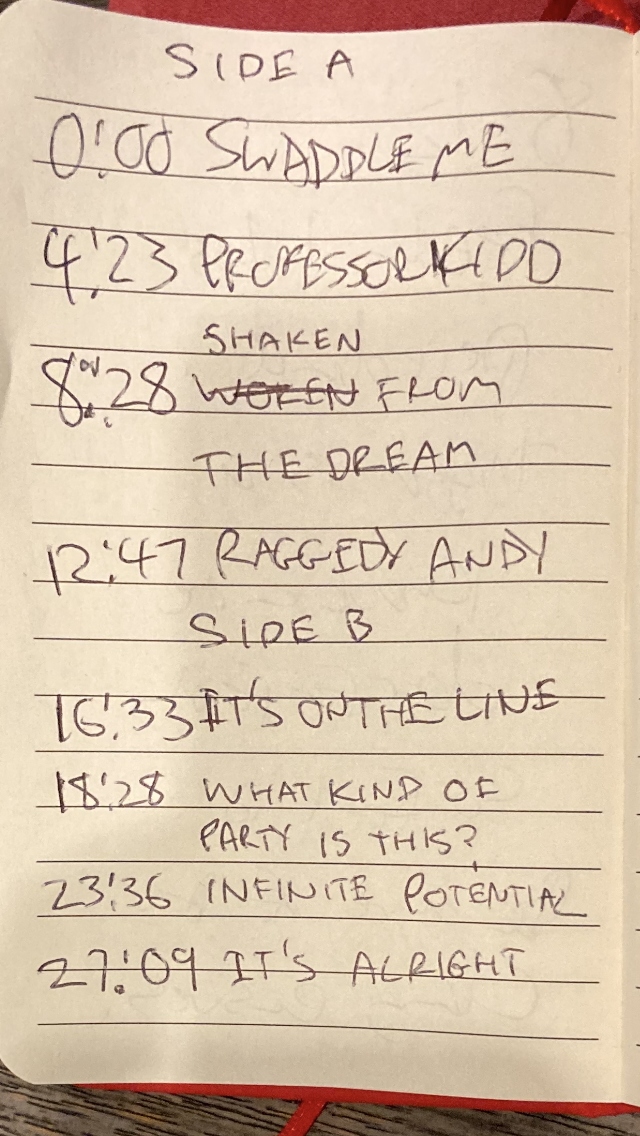 SIDE A
0:00 SWADDLE ME
4:23 PROFESSOR KIDD
SHAKEN
8:28 WOKEN FROM
THE DREAM
12:47 RAGGEDY ANDY
SIDE B
16:33 IT'S ON THE LINE
18:28 WHAT KIND OF
PARTY IS THIS?
23:36 INFINITE POTENTIAL
27:09 IT'S ALRIGHT